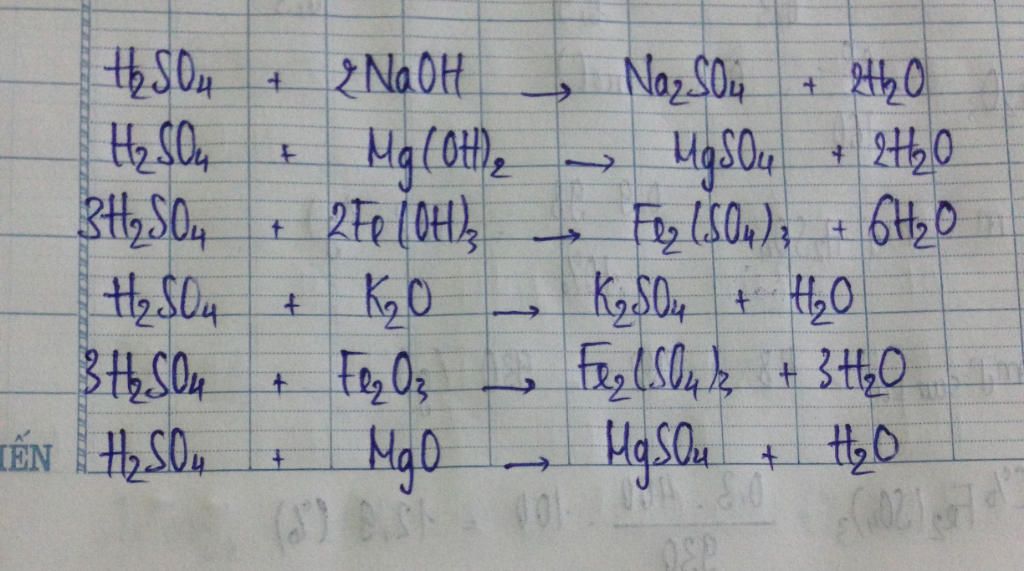 H₂SO₄ + 2NaOH → Na₂SO₄ + 2H₂O
H₂SO₄ + Mg(OH)₂ → MgSO₄ + 2H₂O
3H₂SO₄ + 2Fe(OH)₃ → Fe₂(SO₄)₃ + 6H₂O
H₂SO₄ + K₂O → K₂SO₄ + H₂O
3H₂SO₄ + Fe₂O₃ → Fe₂(SO₄)₃ + 3H₂O
IẾN
H₂SO₄ + MgO → MgSO₄ + H₂O